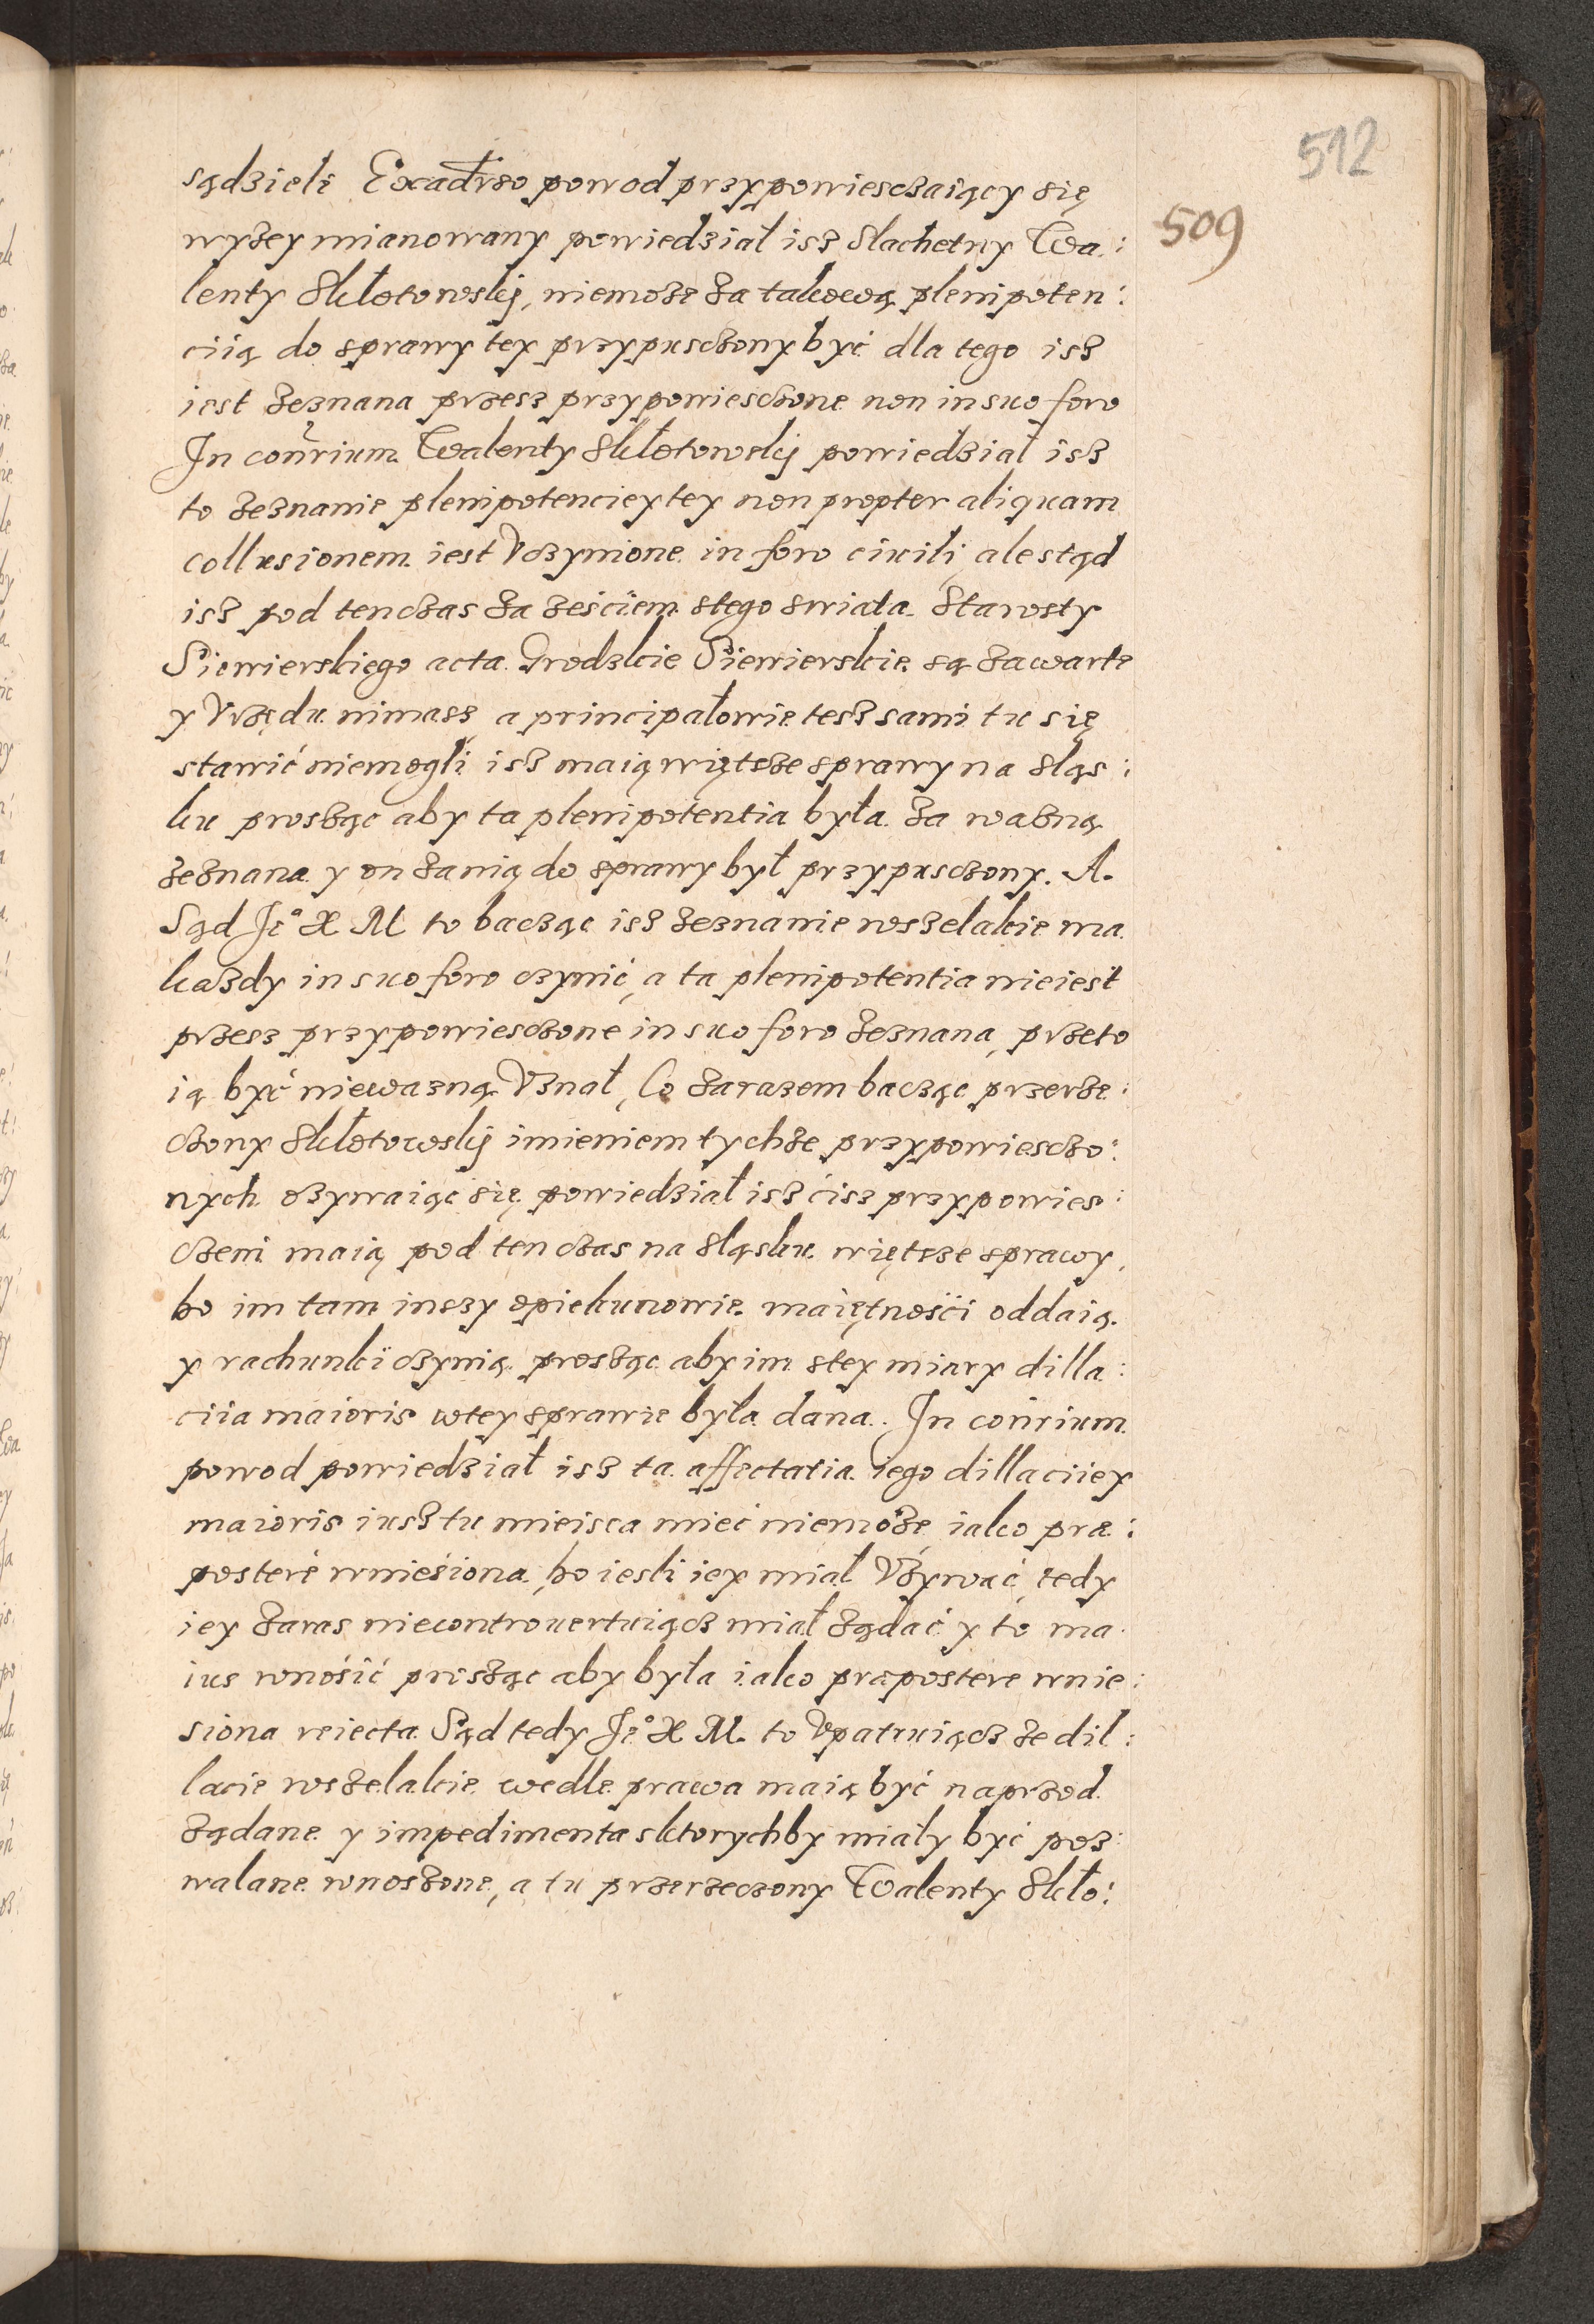 512
509
sądzieli Exadrso powod przypowieszczaiący się
wyzey mianowany powiedział isz Slachetny Wa:
lenty Skłotowskij, niemoze za takową plenipoten:
ciią do sprawy tey przypusczony być dla tego isz
iest zeznana przesz przypowiesczone non in suo foro
In conrium Walenty Skłotowskij powiedział isz
to zeznanie plenipotenciey tey non propter aliquam
collusionem iest Vczynione in foro ciuili, ale stąd
isz pod ten czas za ześciem stego swiata Starosty
Siewierskiego acta Grodzkie Siewierskie są zawarte
y Vrzędu nimasz, a principałowie tesz sami tu się
stawić niemogli isz maią więtsze sprawy na Sląs:
ku prosząc aby ta plenipotentia była za wazną
zeznana y on zanią do sprawy był przypusczony. A.
Sąd Je° X M to bacząc isz zeznanie wszelakie ma
kazdy in suo foro czynić, a ta plenipotentia nieiest
przesz przypowiesczone in suo foro zeznana, przeto
ią być niewazną Vznał, Co zarazem bacząc przerze:
czony Skłotowskij imieniem tychze przypowieszczo:
nych ozywaiąc się powiedział isz cisz przypowies:
czeni maią pod ten czas na Sląsku więtsze sprawy,
bo im tam inszy opiekunowie maiętności oddaią
y rachunki czynią prosząc aby im stey miary dilla:
ciia maioris wtey sprawie była dana. In conrium
powod powiedział isz ta affectatia iego dillaciiey
maioris iusz tu mieisca mieć niemoze, iako præ:
posterè wniesiona, bo iesli iey miał Vzywać, tedy
iey zaras niecontrouertuiącz miał ządać y to ma
ius wnosić prosząc aby była iako præpostere wnie:
siona reiecta. Sąd tedy Je° X M. to Vpatruiącz ze dil:
lacie wszelakie wedle prawa maią być naprzod
ządane y impedimenta sktorychby miały być poz:
walane wnoszone, a tu przerzeczony Walenty Skło: